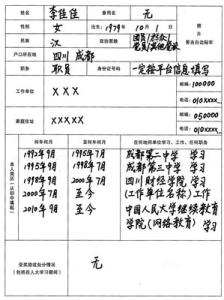 姓名 李佳佳 曾用名 无
性别 女 出生: 1979 年 10 月 1 日
民族 汉 政治面貌 团员/群众/党员/其他党派
户口所在地 四川 成都
职务 职员 身份证号码 一定按平台信息填写
照片
工作单位 XXX 邮编:100000
电话:010XXXX
家庭住址 XXXXX 邮编:050000
电话:010XXXX
本人简历(从初中填起)
何年何月 至何年何月 在何地何单位学习、工作、任何职务
1992年9月 1995年7月 成都第二中学 学习
1995年9月 1998年7月 成都第三中学 学习
1998年9月 2000年7月 四川财经学院 学习
2000年7月 至今 (工作单位名称)工作
2010年9月 至今 中国人民大学继续教育学院(网络教育) 学习
受奖励或处分情况
(包括在人大学习期间)
无